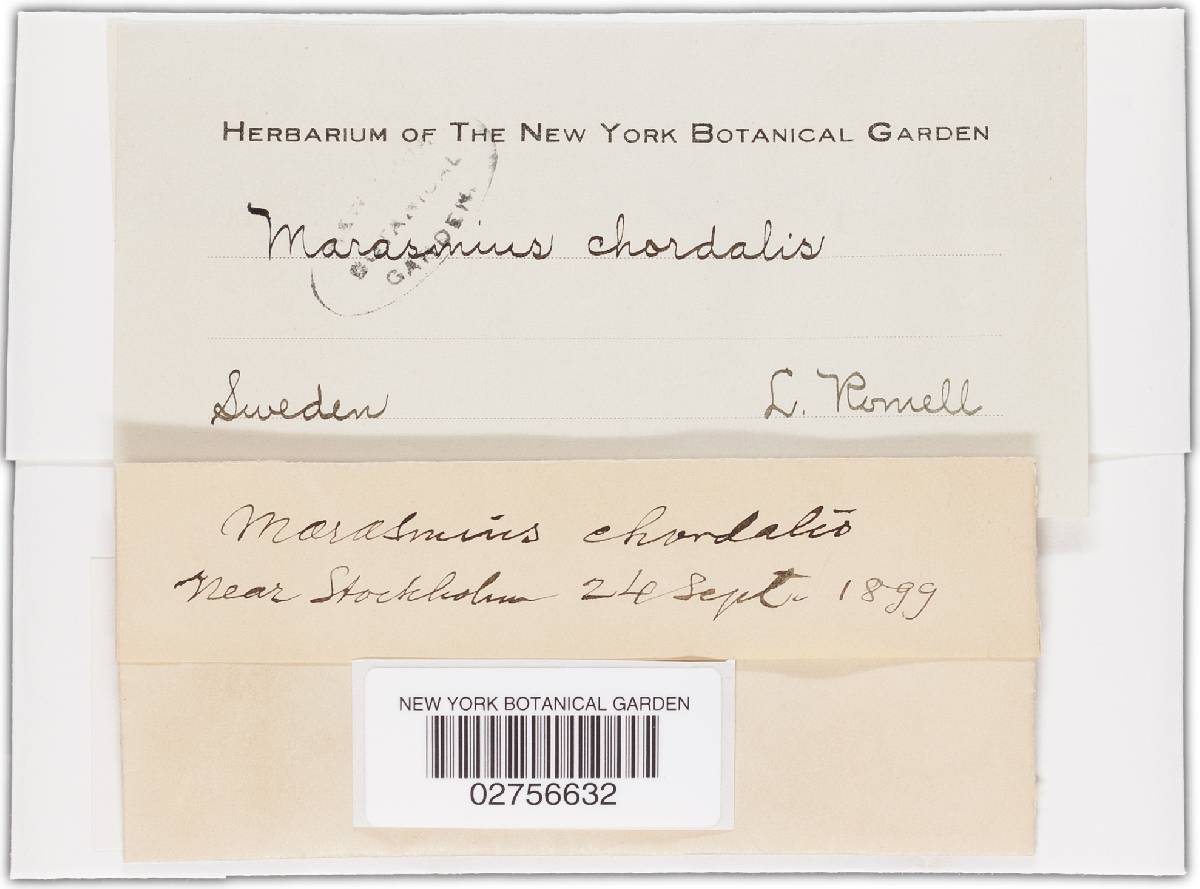 HERBARIUM OF THE NEW YORK BOTANICAL GARDEN
BOTANICAL
GARDEN
Marasmius chordalis
Sweden L. Romell
Marasmius chordalis
Near Stockholm 24 Sept. 1899
NEW YORK BOTANICAL GARDEN
02756632